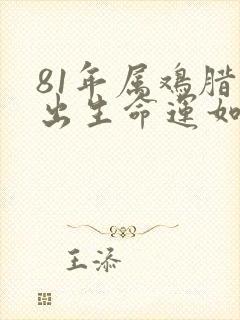 81年属鸡腊
出生命运如
王添